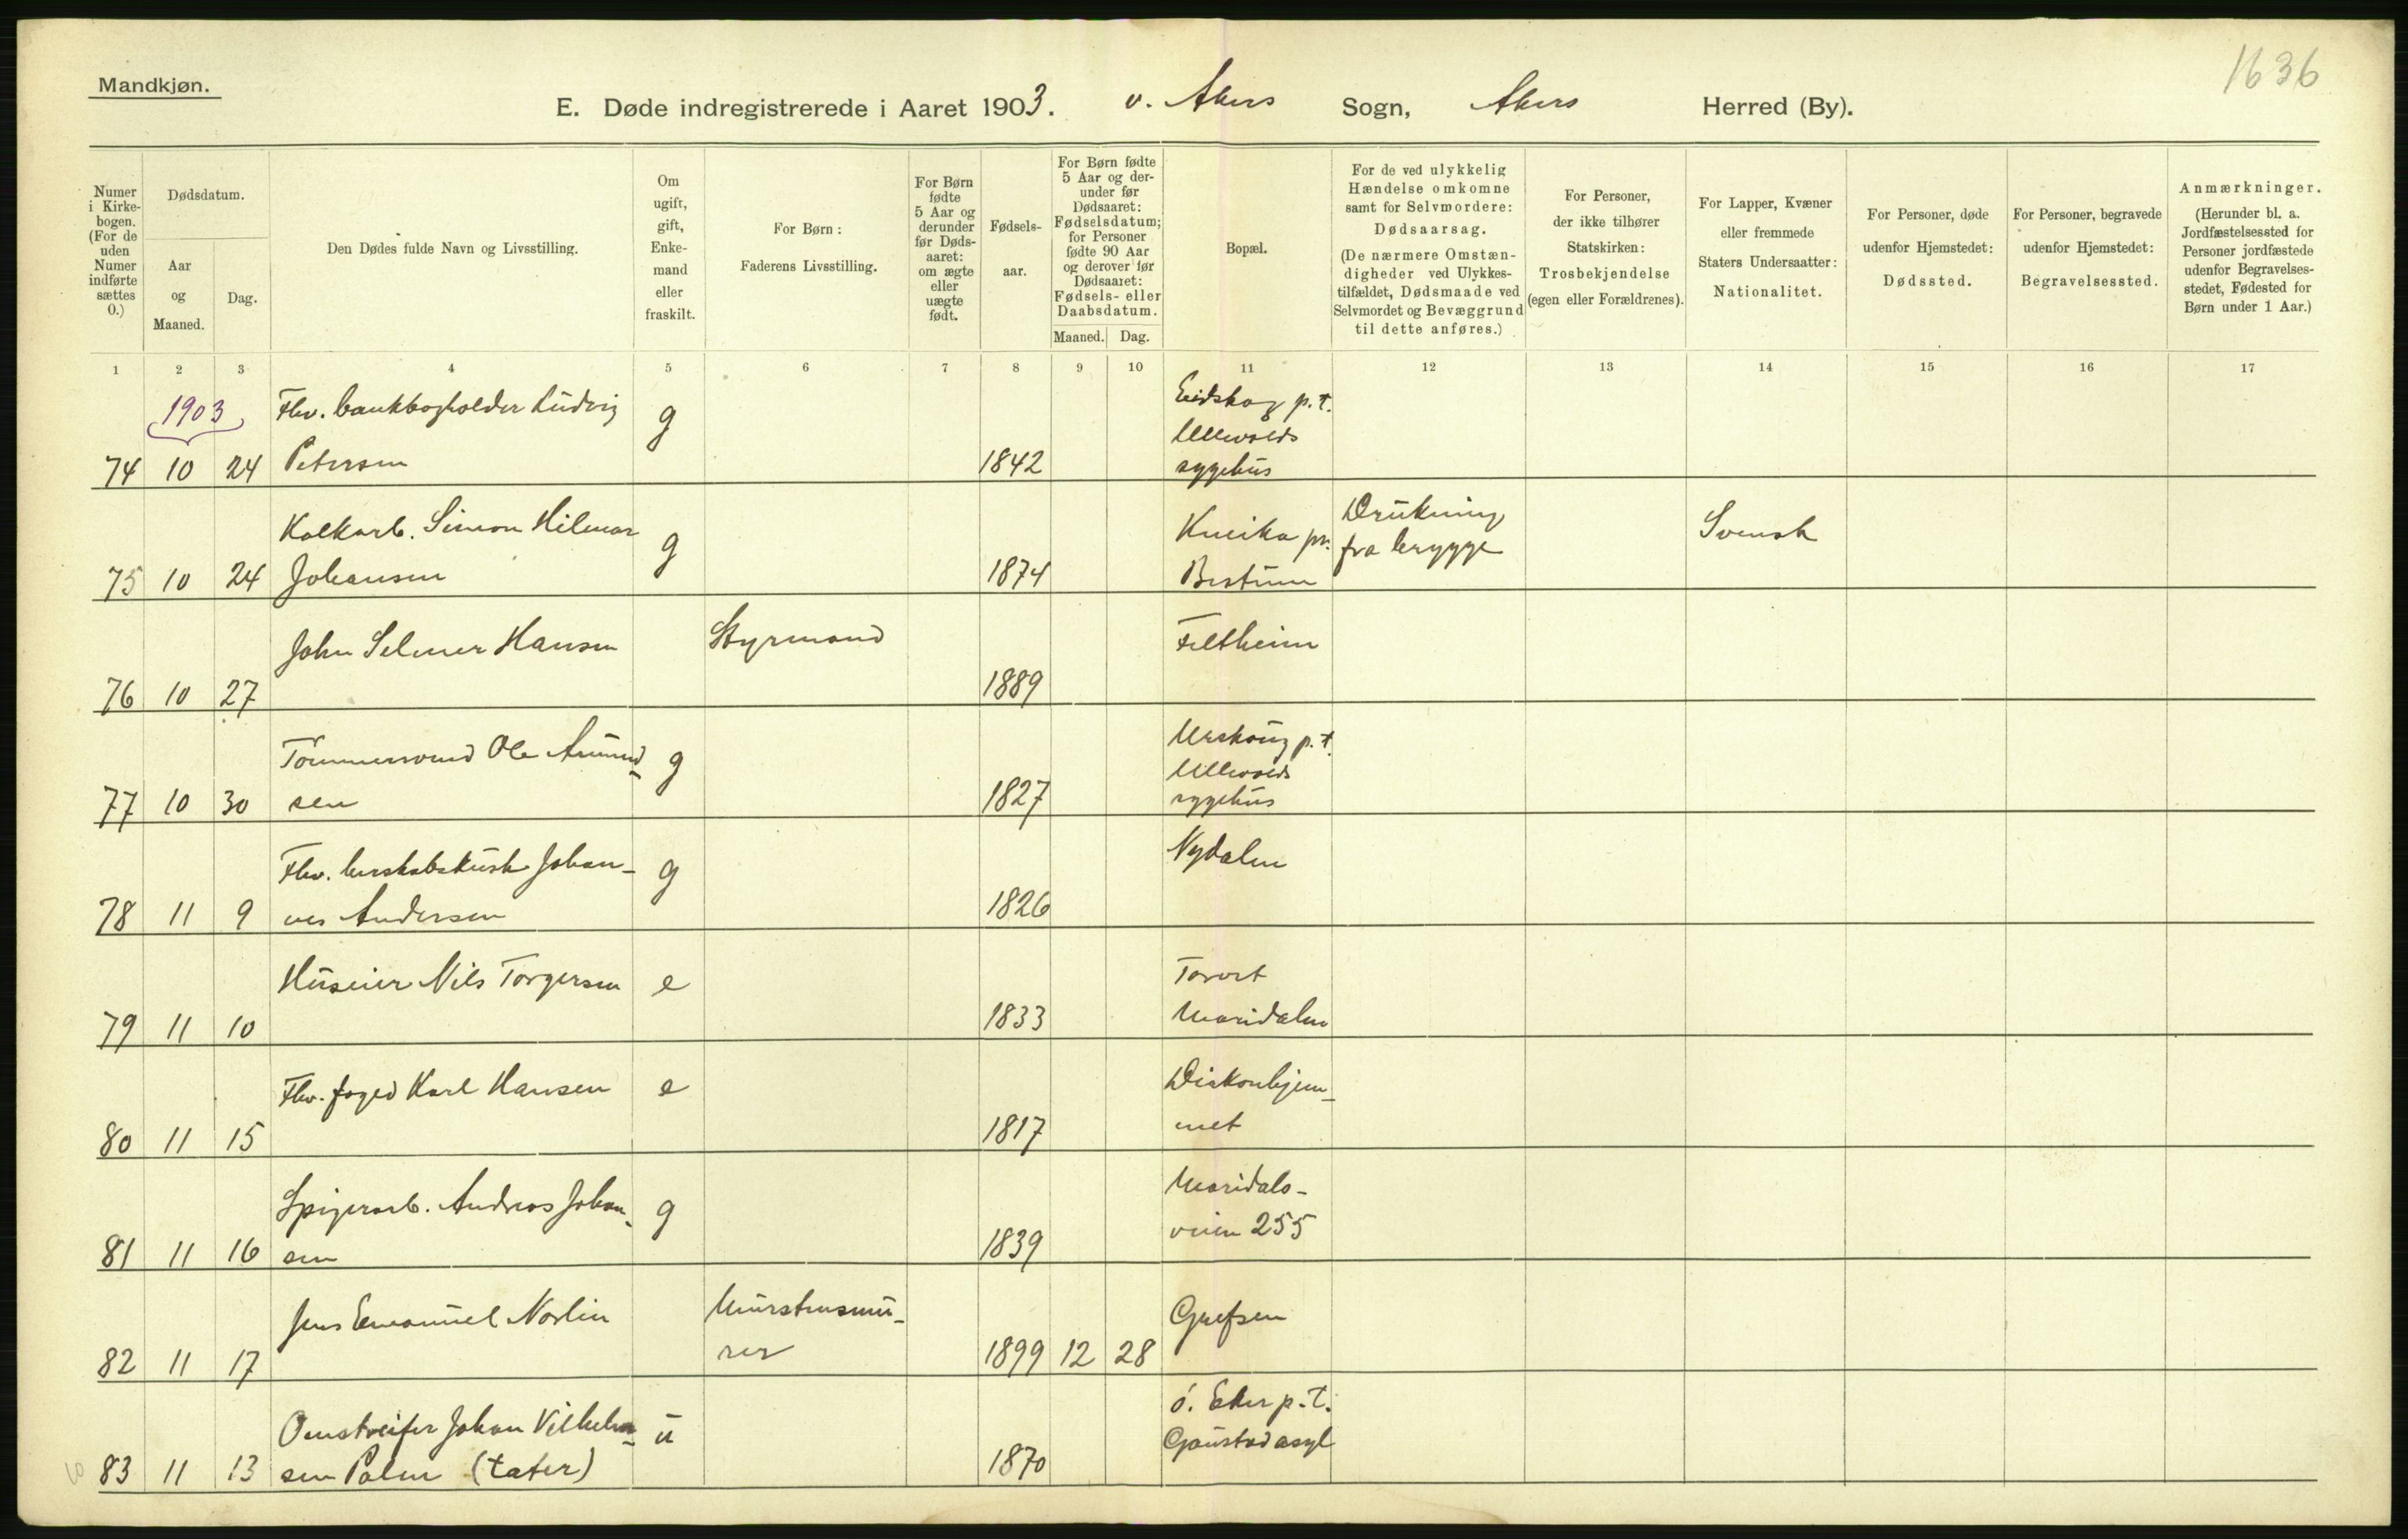 1636
Mandkjøn.
E. Døde indregistrerede i Aaret 1903. v. Akers Sogn, Akers Herred (By).
Numer i Kirkebogen. (For de uden Numer indførte sættes 0.)
Dødsdatum.
Aar og Maaned.
Dag.
Den Dødes fulde Navn og Livsstilling.
Om ugift, gift, Enkemand eller fraskilt.
For Børn: Faderens Livsstilling.
For Børn fødte 5 Aar og derunder før Dødsaaret: om ægte eller uægte født.
Fødselsaar.
For Børn fødte 5 Aar og derunder før Dødsaaret: Fødselsdatum; for Personer fødte 90 Aar og derover før Dødsaaret: Fødsels- eller Daabsdatum.
Maaned. Dag.
Bopæl.
For de ved ulykkelig Hændelse omkomne samt for Selvmordere: Dødsaarsag. (De nærmere Omstændigheder ved Ulykkestilfældet, Dødsmaade ved Selvmordet og Bevæggrund til dette anføres.)
For Personer, der ikke tilhører Statskirken: Trosbekjendelse (egen eller Forældrenes).
For Lapper, Kvæner eller fremmede Staters Undersaatter: Nationalitet.
For Personer, døde udenfor Hjemstedet: Dødssted.
For Personer, begravede udenfor Hjemstedet: Begravelsessted.
Anmærkninger. (Herunder bl. a. Jordfæstelsessted for Personer jordfæstede udenfor Begravelsesstedet, Fødested for Børn under 1 Aar.)
1 2 3 4 5 6 7 8 9 10 11 12 13 14 15 16 17
1903 Fhv. bankbogholder Ludvig g Eidskog p.t.
Ullevolds
74 10 24 Petersen 1842 sygehus
Kalkarb. Simon Hilmar g Kneika pr. Drukning Svensk
fra brygge
75 10 24 Johansen 1874 Bestum
John Selmer Hansen Styrmand Feltheim
76 10 27 1889
Tömmermand Ole Amund- g Urskoug p.t.
Ullevolds
77 10 30 sen 1827 sygehus
Fhv. herskabskusk Johan- g Nydalen
78 11 9 nes Andersen 1826
Huseier Nils Torgersen e
79 11 10 1833 Maridalen
Fhv. foged Karl Hansen e Diakonhjem-
80 11 15 1817 met
Spigerarb. Andreas Johan- g Maridals-
81 11 16 sen 1839 veien 255
Jens Emanuel Norlin Murstensmu- Grefsen
82 11 17 rer 1899 12 28
Omstreifer Johan Vilhelm- u ö. Eker p.t.
Gaustad asyl
83 11 13 sen Palm (tater) 1870